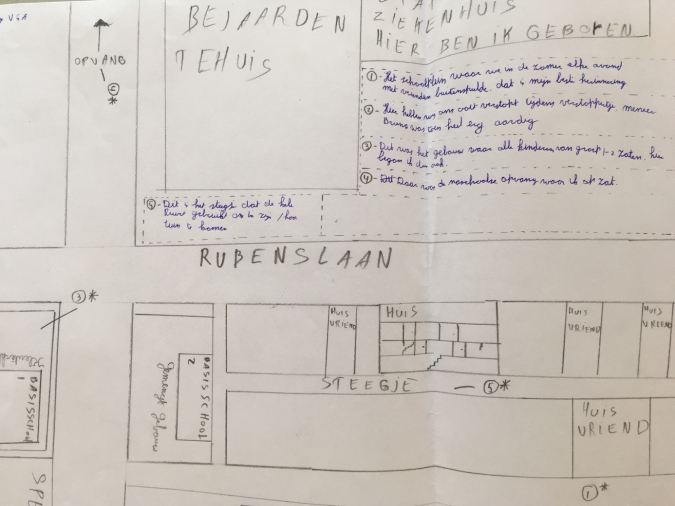 VSA
OPVANG
④*
BEJAARDEN
TEHUIS
ZIEKENHUIS
HIER BEN IK GEBOREN
① - Het schoolplein waar we in de zomer elke avond
met vrienden buitenspeelde. dat is mijn best herinnering
② - Hier hebben we ons ooit verstopt tijdens verstoppertje meneer
Bruno was toen heel erg aardig
③ - Dit was het gebouw waar alle kinderen van groep 1-2 zaten. hier
begon ik dus ook.
④ - Dit Daar was de naschoolse opvang waar ik op zat.
⑤ - Dit is het steegje dat de hele
buurt gebruikt om in zijn / haar
tuin te komen
RUBENSLAAN
③*
BASISSCHOOL
1
BASISSCHOOL
2
Gemengd gebouw
HUIS
VRIEND
HUIS
HUIS
VRIEND
HUIS
VRIEND
STEEGJE
⑤*
HUIS
VRIEND
①*
SPE